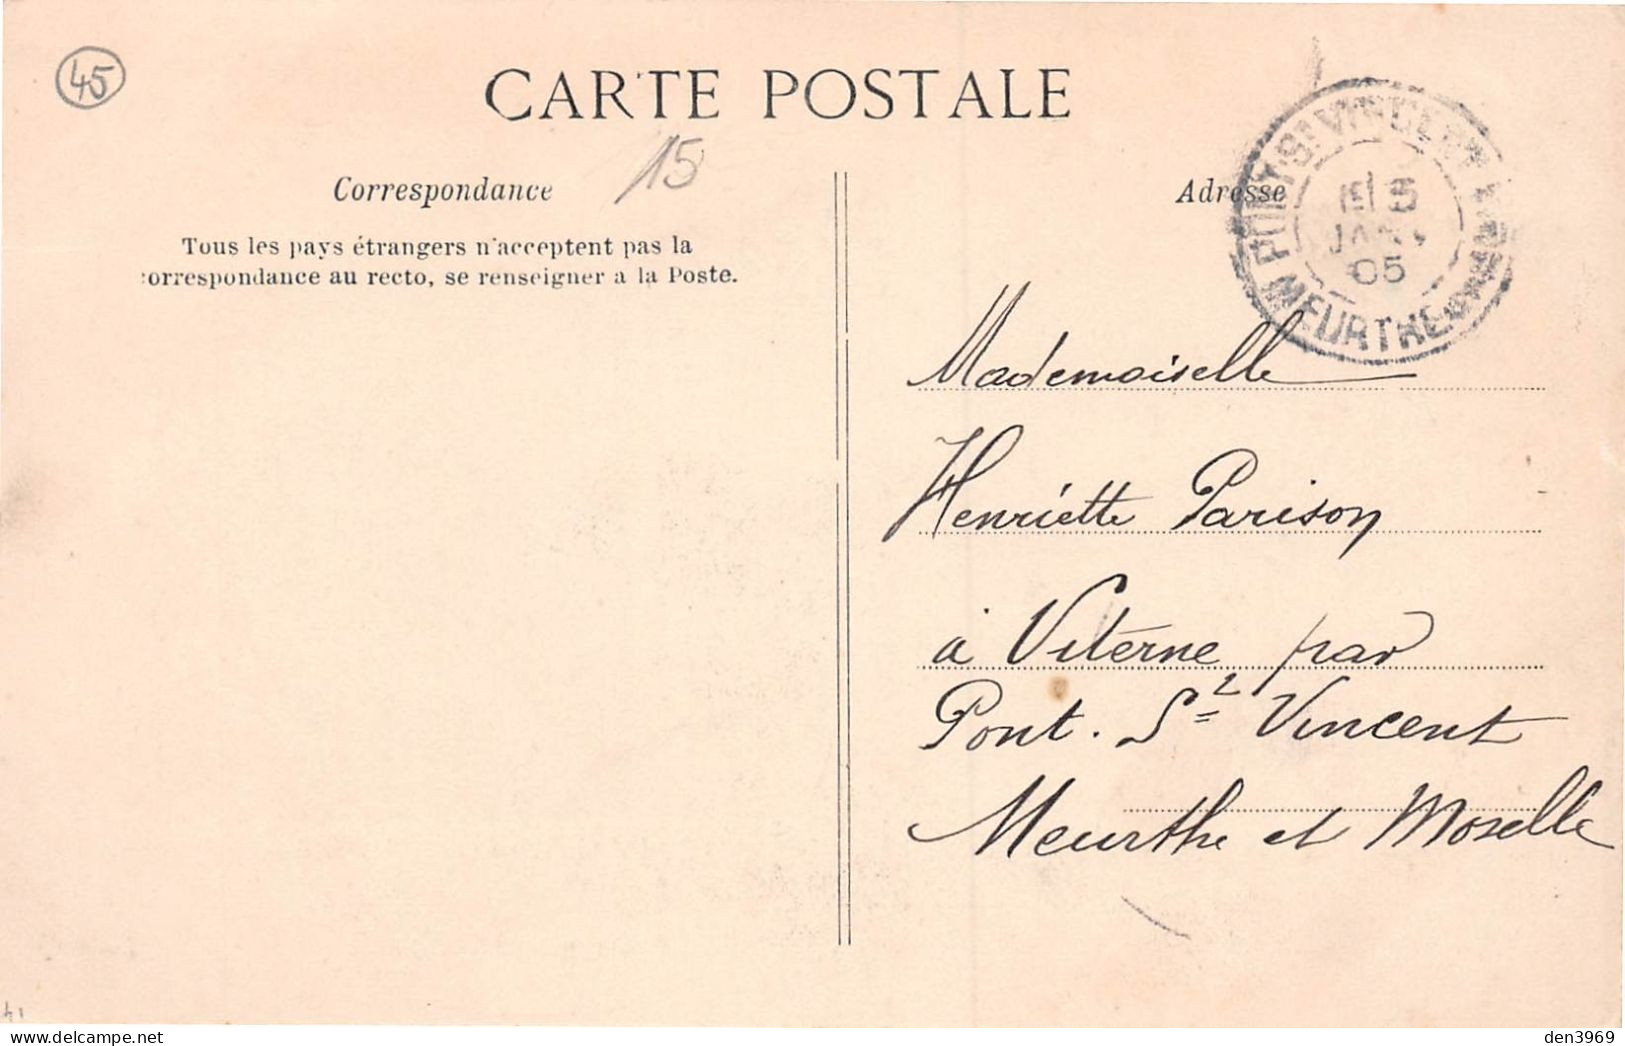 45
CARTE POSTALE
15
Correspondance
Tous les pays étrangers n'acceptent pas la
correspondance au recto, se renseigner a la Poste.
Adresse
PONT-St-VINCENT
5
JANV
05
MEURTHE
Mademoiselle
Henriette Parison
à Viterne par
Pont. St Vincent
Meurthe et Moselle
41
den3969